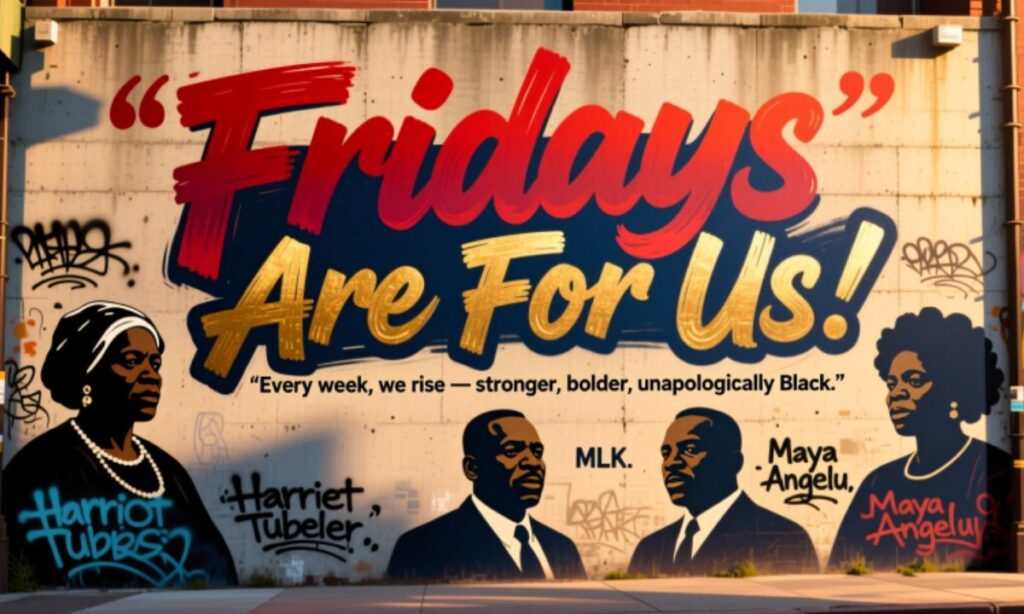 “Fridays”
Are For Us!
“Every week, we rise — stronger, bolder, unapologically Black.”
MLK.
Maya
Angelu,
Harriet
Tubeler
Harriot
Tubbs
Maya
Angelu